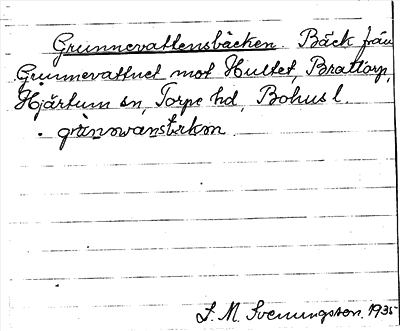 Grunnevattensbäcken. Bäck från
Grunnevattnet mot Hultet, Brattorp,
Hjärtum sn, Torpe hd, Bohusl.
S. M. Svenungsson. 1935